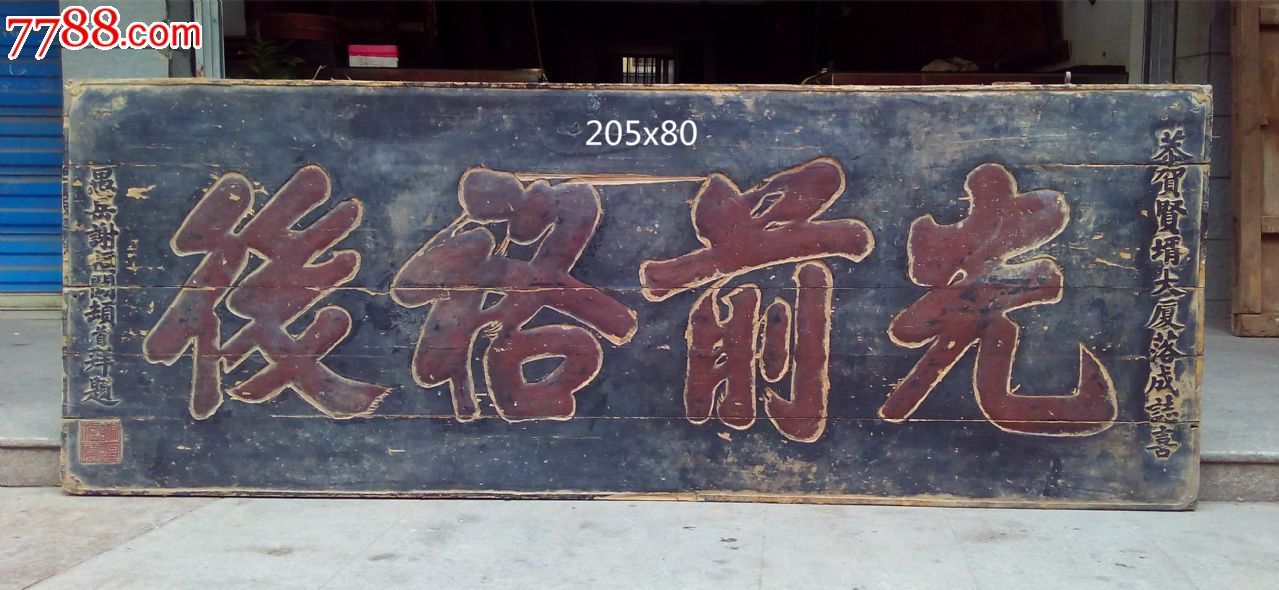 7788.com
205x80
恭賀賢壻大廈落成誌喜
光前裕後
愚岳謝恒開頓首拜題